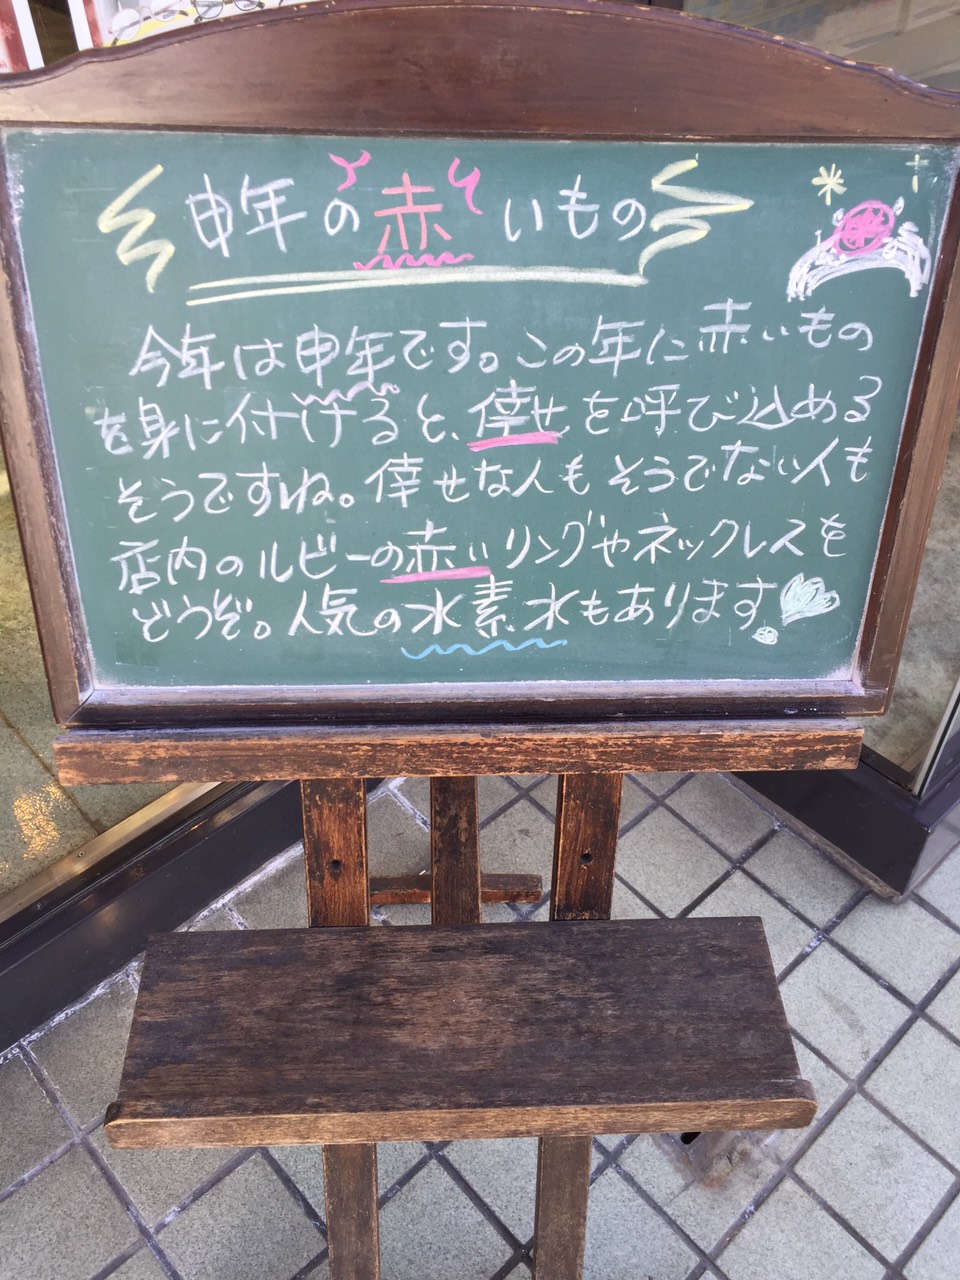 申年の赤いもの
今年は申年です。この年に赤いもの
を身に付けると、倖せを呼び込める
そうですね。倖せな人もそうでない人も
店内のルビーの赤いリングやネックレスを
どうぞ。人気の水素水もあります